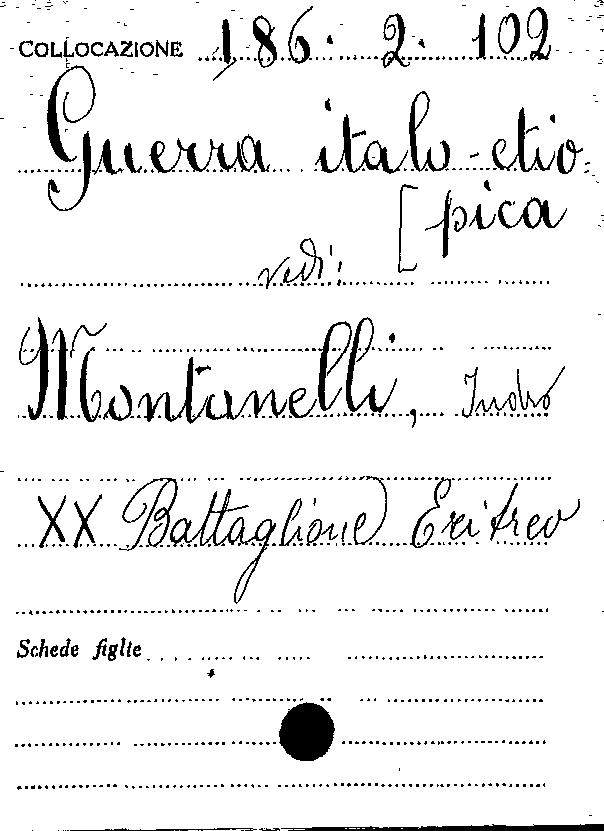 COLLOCAZIONE 186. 2. 102
Guerra italo-etio-
[pica
vedi:
Montanelli, Indro
XX Battaglione Eritreo
Schede figlie